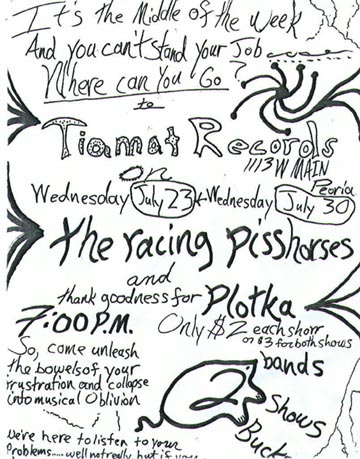 It's the Middle of the Week
And you can't stand your Job
Where can You Go?
to
Tiamat Records
1113 W MAIN
Peoria
on
Wednesday July 23 & Wednesday July 30
the racing pisshorses
and
thank goodness for Plotka
7:00 P.M.
Only $2 each show
or $3 for both shows
So, come unleash
the bowels of your
frustration and collapse
into musical Oblivion
2
bands
Shows
Bucks
We're here to listen to your
Problems..... well not really, but if you